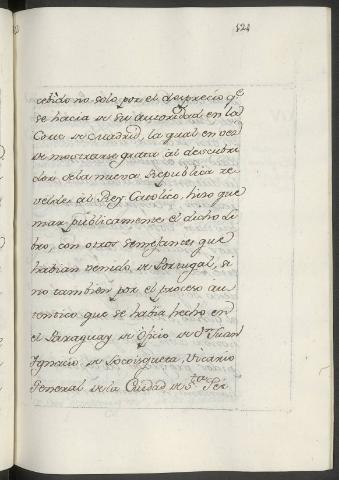 121
cebido no solo por el desprecio q.e
se hacia de su autoridad en la
Corte de Madrid, la qual en vez
de mostrarse grata al descubri
dor de la nueva Republica re
velde al Rey Catolico, hizo que
mar publicamente el dicho li
bro, con otros semejantes que
habian venido de Portugal, si
no tambien por el proceso au
tentico que se habia hecho en
el Paraguay de Oficio de D.n Juan
Ignacio de Vicario
General de la Ciudad de S.ta Fee